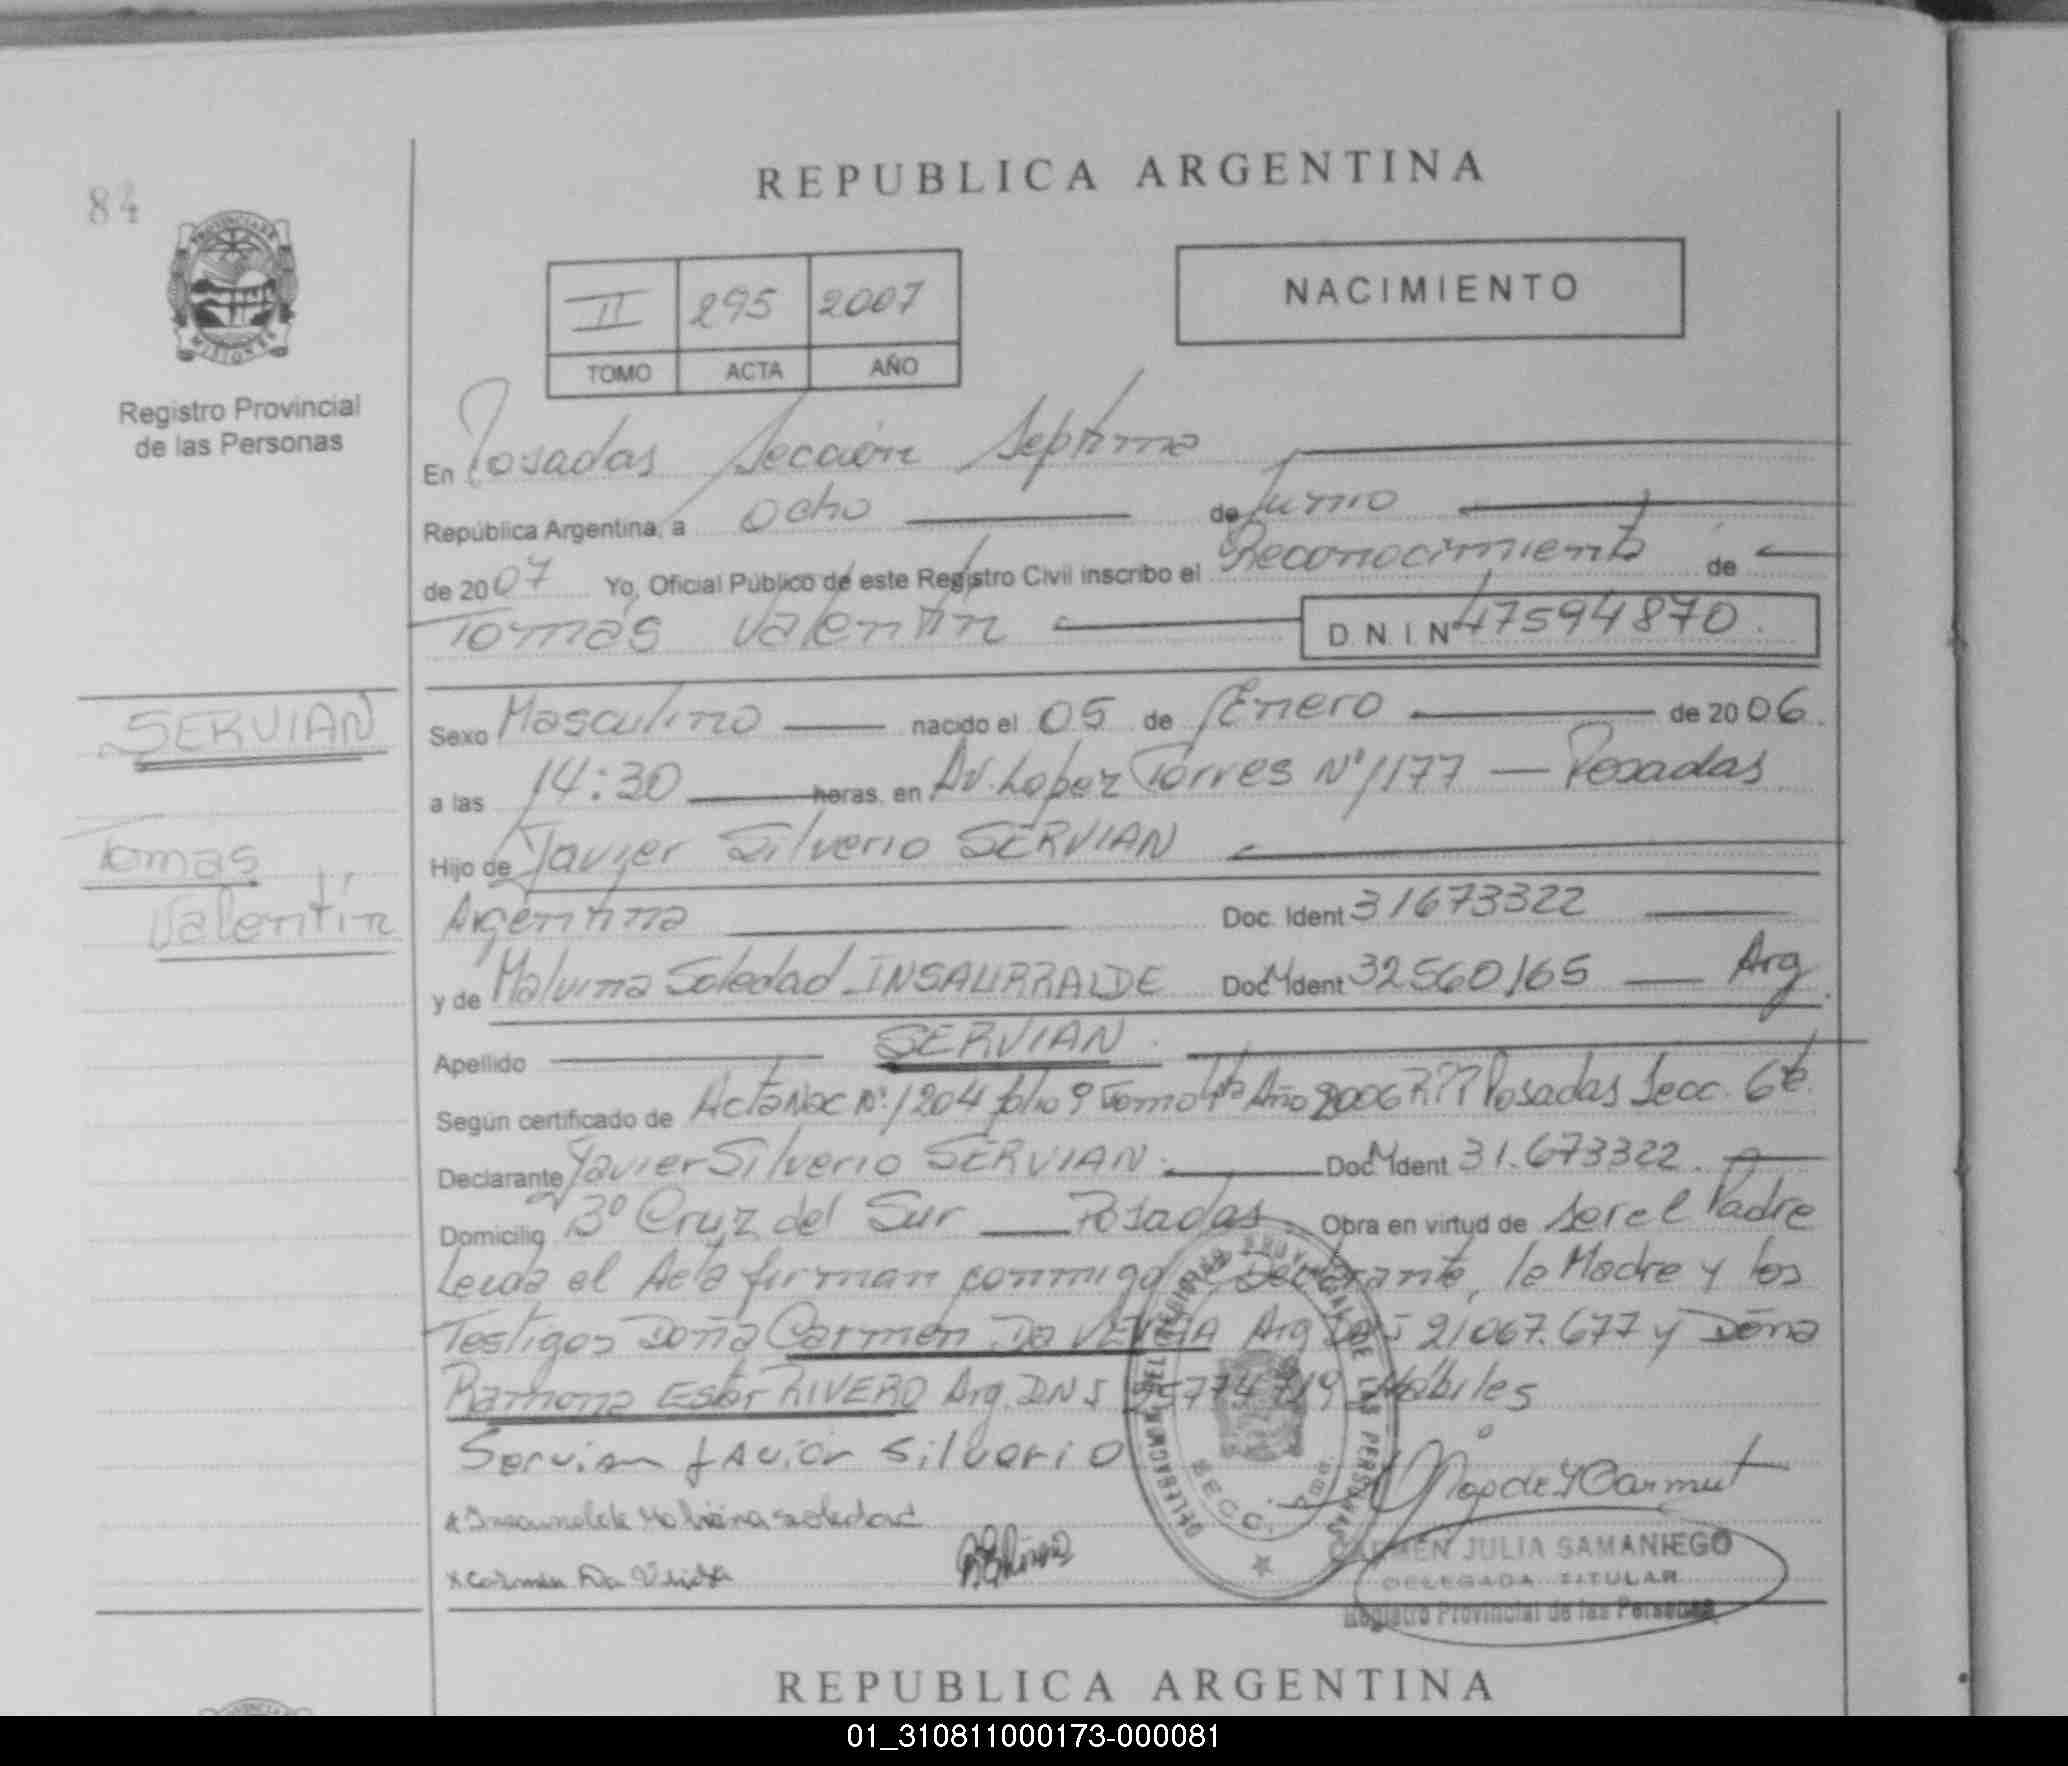 84
REPUBLICA ARGENTINA
PROVINCIA DE
MISIONES
Registro Provincial
de las Personas
II 295 2007
TOMO ACTA AÑO
NACIMIENTO
En Posadas Sección Septima
República Argentina, a Ocho de Junio
de 2007 Yo, Oficial Público de este Registro Civil inscribo el Reconocimiento de
Tomás Valentín D.N.I. Nº 47594870.
SERVIAN
Tomás
Valentín
Sexo Masculino nacido el 05 de Enero de 2006.
a las 14:30 horas, en Av. Lopez Torres Nº 1177 — Posadas
Hijo de Javier Silverio SERVIAN
Argentina Doc. Ident 31673322
y de Malvina Soledad INSAURRALDE Doc. Ident 32560165 — Arg.
Apellido SERVIAN.
Según certificado de Acta Nac Nº 1204 folio 9 Tomo Año 2006 R.P.P Posadas Secc. 6ta
Declarante Javier Silverio SERVIAN. Doc. Ident 31.673322.
Domicilio Bº Cruz del Sur — Posadas. Obra en virtud de ser el Padre
Leida el Acta firman conmigo Declarante, la Madre y los
Testigos Doña Carmen Da Arg DNI 21067.677 y Doña
Ramona Ester RIVERO Arg. DNI Hábiles
Servian Javier Silverio
x Insaurralde Malvina Soledad
x Carmen Da
DELEGACION DEL REGISTRO PROVINCIAL DE LAS PERSONAS
SECC. 7ma
CARMEN JULIA SAMANIEGO
DELEGADA TITULAR
Registro Provincial de las Personas
REPUBLICA ARGENTINA
01_310811000173-000081